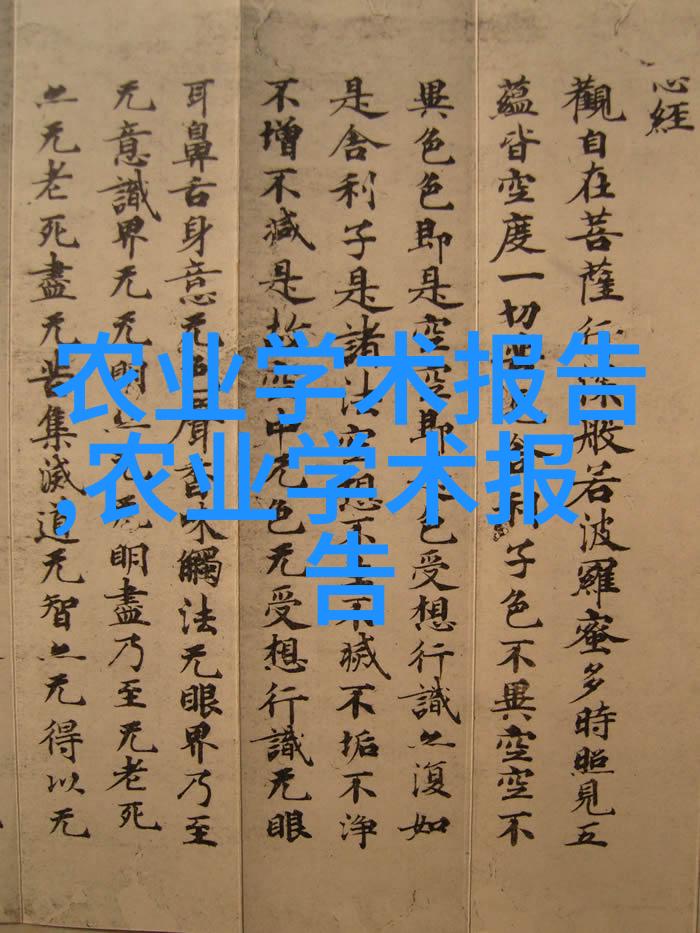 心經
觀自在菩薩行深般若波羅蜜多時照見五
蘊皆空度一切舍利子色不異空空不
異色色即是空空即是色受想行識亦復如
是舍利子是諸法空想不生不滅不垢不淨
不增不減是故空中无色无受想行識无眼
耳鼻舌身意无色聲香味觸法无眼界乃至
无意識界无无明亦无无明盡乃至无老死
亦无老死盡无苦集滅道无智亦无得以无
农业学术报告
,农业学术报
告